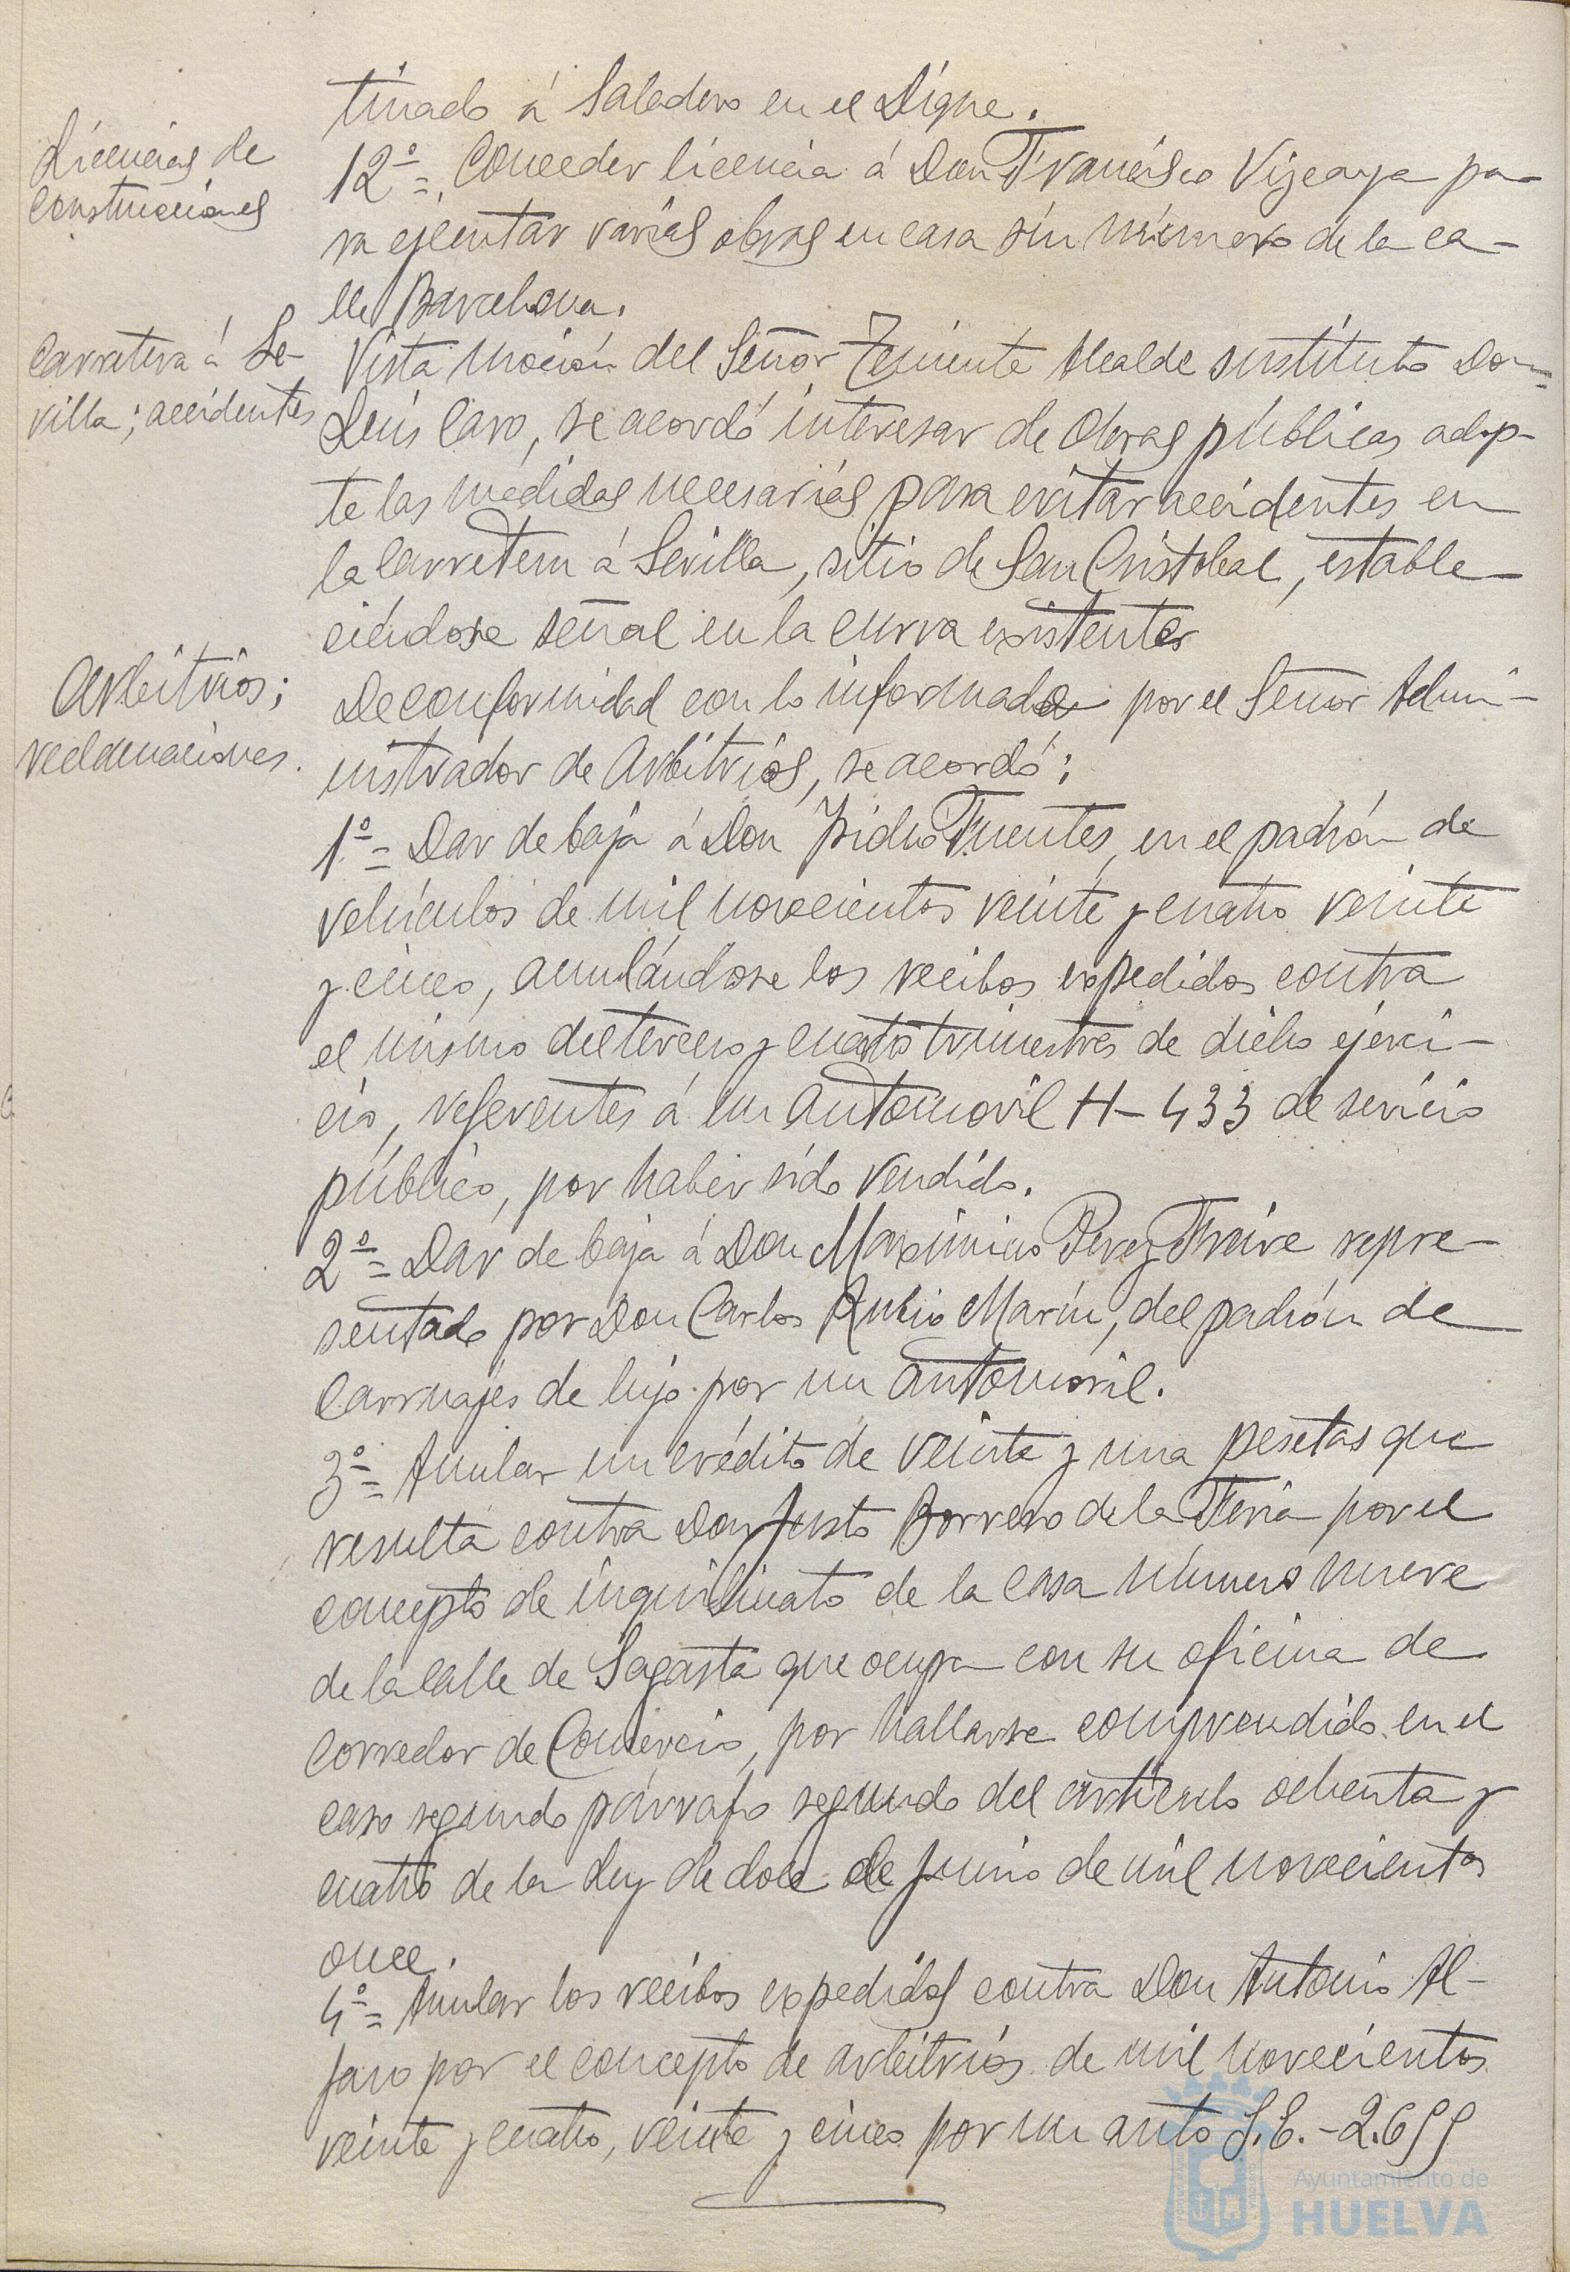 tinado á Saladero en el Dique.
Licencias de
construcciones
12º = Conceder licencia á Don Francisco Vizcaya pa-
ra ejecutar varias obras en casa sin número de la ca-
lle Barcelona.
Carretera á Se-
villa; accidentes
Vista moción del Señor Teniente Alcalde sustituto Don=
Luis Caro, se acordó interesar de Obras públicas adop-
te las medidas necesarias para evitar accidentes en
la Carretera á Sevilla, sitio de San Cristobal, estable-
ciéndose señal en la curva existente
Arbitrios;
reclamaciones.
De conformidad con lo informado por el Señor Admi-
nistrador de Arbitrios, se acordó:
1º = Dar de baja á Don Isidro Fuentes, en el padrón de
vehículos de mil novecientos veinte y cuatro veinte
y cinco, anulándose los recibos expedidos contra
el mismo del tercero y cuarto trimestres de dicho ejerci-
cio, referentes á un automovil H-433 de servicio
público, por haber sido vendido.
2º = Dar de baja á Don Maximino Perez Freire repre-
sentado por Don Carlos Rubio Marín, del padrón de
Carruajes de lujo por un automóvil.
3º = Anular un crédito de veinte y una pesetas que
resulta contra Don Justo Borrero de la Feria por el
concepto de inquilinato de la casa número nueve
de la Calle de Sagasta que ocupa con su oficina de
Corredor de Comercio, por hallarse comprendido en el
caso segundo párrafo segundo del artículo ochenta y
cuatro de la Ley de doce de Junio de mil novecientos
once.
4º = Anular los recibos expedidos contra Don Antonio Al-
faro por el concepto de arbitrios de mil novecientos
veinte y cuatro, veinte y cinco por un auto S.E.-2.655
Ayuntamiento de
HUELVA